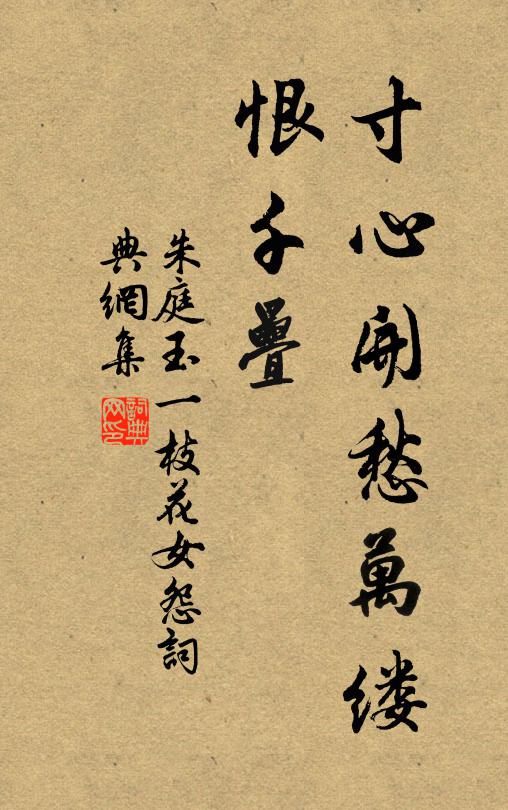 寸心開愁萬缕
恨千疊
朱庭玉一枝花女怨詞
典網集
詞典网印